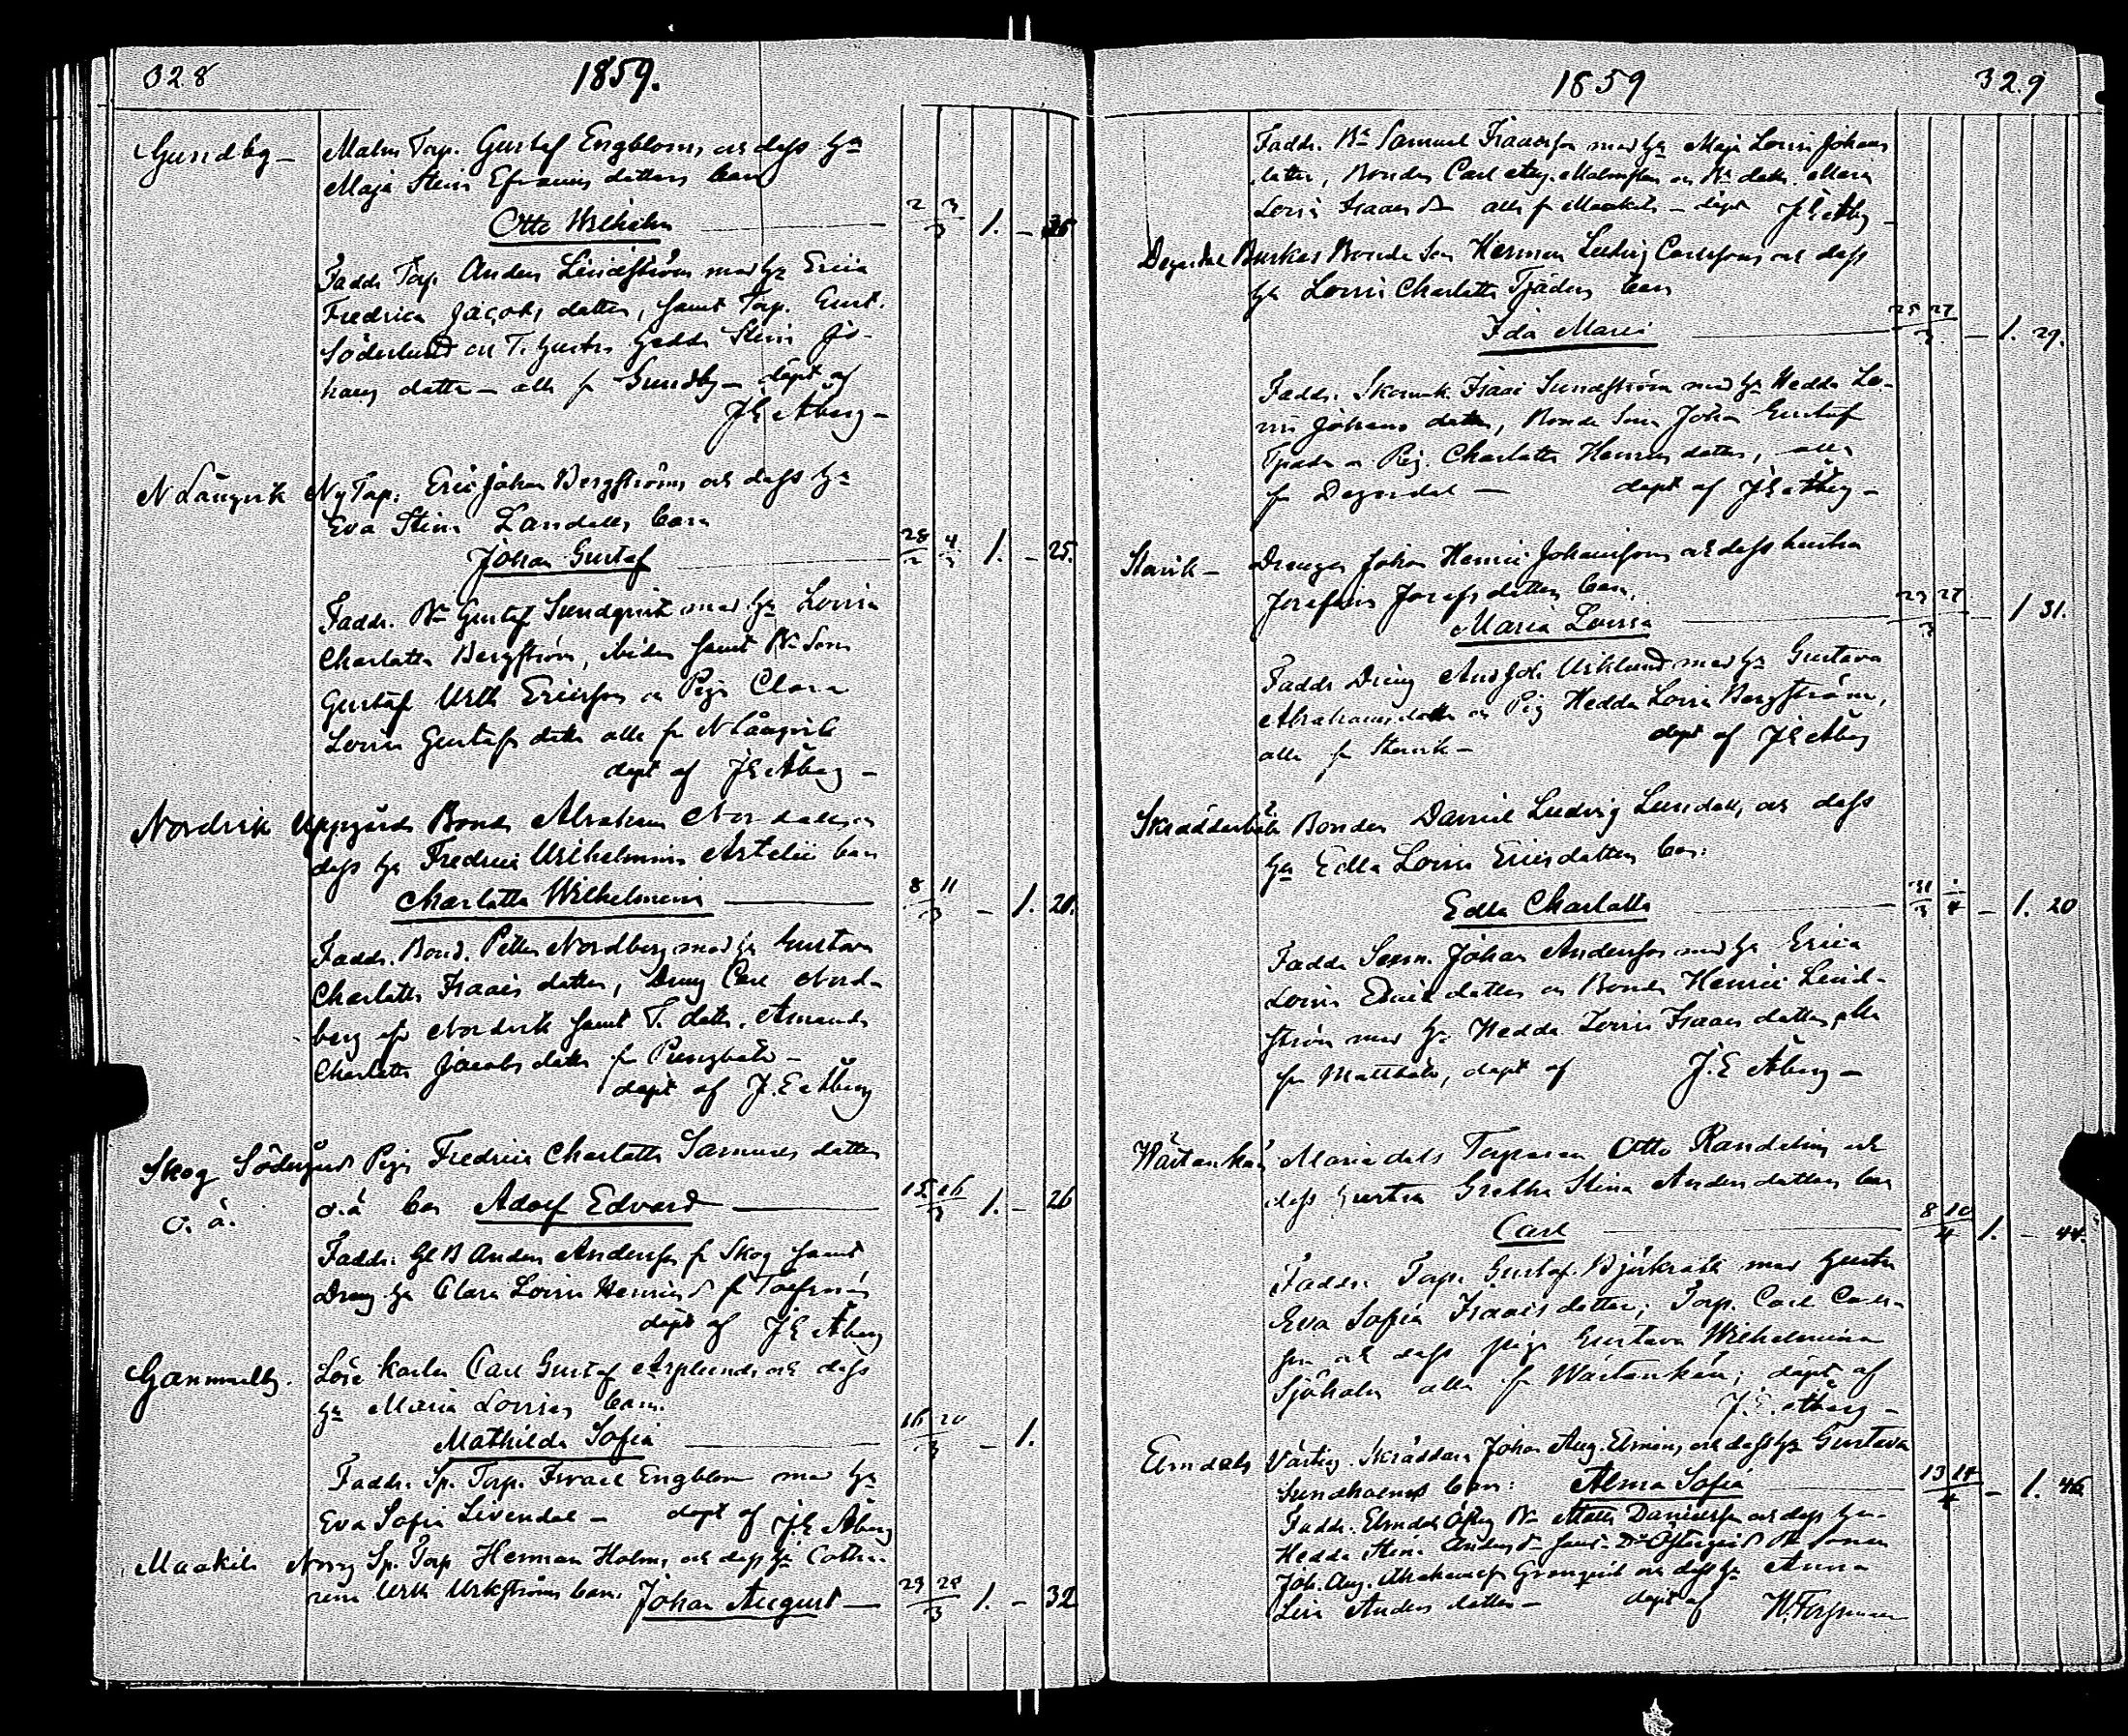 328
1859.
Gundby - Malm Torp. Gustaf Engbloms och dess h:u
Maja Stina Efraims dotters barn
Otto Wilhelm 2/3 3/3 1. - 35
Fadd. Torp. Anders Lindström med h:u Erica
Fredrica Jacobs dotter, samt Torp. Gust.
Söderlund och T. hustru Hedda Stina Jo-
hans dotter - alla fr Gundby - döpt af
J E Åberg -
N Långvik Ny Torp. Eric Johan Bergströms och dess h:u
Eva Stina Landells barn
Johan Gustaf 28/2 4/3 1. - 25.
Fadd. B:n Gustaf Sundqvist med h:u Lovisa
Charlotta Bergström, samt B:n Son
Gustaf Wilh Ericsson o Pig. Clara
Lovisa Gustafs dotter alla fr N Långvik
döpt af J E Åberg -
Nordvik Uppgårds Bond. Abraham Nordells o
dess h:u Fredrica Wilhelmina Artelii barn
Charlotta Wilhelmina 8 11/3 - 1. 20.
Fadd. Bond. Petter Nordberg med h:u Gustava
Charlotta Isaacs dotter, Dreng Carl Nord-
berg fr Nordvik samt T. dotter. Amanda
Charlotta Jacobs dotter fr
döpt af J. E Åberg
Skog Södergård Piga Fredrica Charlotta Samuels dotters
o. ä. o.ä barn Adolf Edvard 15 16/3 1. - 26
Fadd. Gl B Anders Andersson fr Skog samt
Dreng h:u Clara Lovisa Henricsd fr
döpt af J E Åberg
Gammelby. Löse karlen Carl Gustaf Asplunds och dess
h:u Maria Lovisas barn.
Mathilda Sofia 16 20/3 - 1.
Fadd. Sp. Torp. Israel Engblom med h:u
Eva Sofia Livendal - döpt af J E Åberg
Maakila Norrg Sp. Torp Herman Holms och dess h:u Catha-
rina Wilh Wikströms barn. Johan August - 23 28/3 1. - 32
1859
329
Fadd. B:n Samuel Isaacsson med h:u Maja Lovisa Johans
dotter, Bonden Carl Aug. Malmsten och B:n dotter. Maria
Lovisa Isaacsd:r alla fr Maakila - döpt J E Åberg -
Degerdal Buskas Bonde Son Herman Ludvig Carlssons och dess
h:u Lovisa Charlotta Tjäders barn
Ida Maria 25 27/3 - 1. 29.
Fadd. Skomak. Isaac Sundström med h:u Hedda Lo-
visa Johans dotter, Bonde Son Johan Gustaf
Tjäder o Pig. Charlotta Henrics dotter, alla
fr Degerdal - döpt af J E Åberg -
Storvik - Drengen Johan Henric Johanssons och dess hustru
Josefina Josefs dotters barn,
Maria Lovisa 23 27/3 - 1 31.
Fadd Dreng And Joh Wiklund med h:u Gustava
Abrahams dotter o Pig Hedda Lovisa Bergström,
alla fr Storvik - döpt af J E Åberg
Skräddarböle Bonden Daniel Ludvig Lundell, och dess
h:u Edla Lovisa Erics dotters barn:
Edla Charlotta 31/3 1/4 - 1. 20
Fadd Johan Andersson med h:u Erica
Lovisa Erics dotter o Bonde Henric Lind-
ström med h:u Hedda Lovisa Isaacs dotter, alla
fr Mattböle, döpt af J. E Åberg -
Wårtankärr Mariedals Torparen Otto Randelins och
dess hustru Gretha Stina Anders dotters barn
Carl 8 10/4 1. - 44.
Fadd. Torp. Gustaf Björkqvist med hustru
Eva Sofia Isaacs dotter; Torp. Carl Carls-
son, och dess piga Gustava Wilhelmina
Sjöholm alla fr Wårtankärr; döpt af
J. E. Åberg -
Elmdals Skräddaren Johan Aug. Elmens och dess h:u Gustava
Sundholms barn: Alma Sofia 13 14/4 - 1. 46
Fadd. Elmdal B:n Matts Danielsson och dess h:u
Hedda Stina Andersd:r samt D:o Östergård B:n sonen
Joh. Aug. Abrahamss Grönqvist och dess h:u Anna
Lisa Anders dotter - döpt af W. Forsman